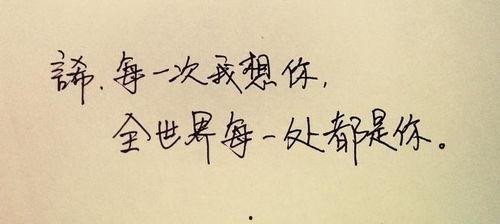 言希.每一次我想你,
全世界每一处都是你。